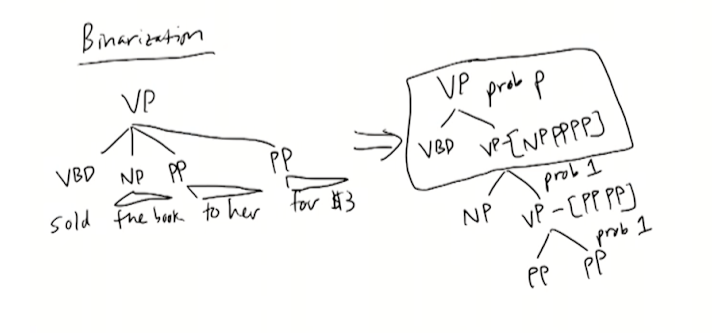 Binarization
VP
VBD NP PP PP
sold the book to her for $3
VP prob p
VBD VP-[NP PP PP]
prob 1
NP VP-[PP PP]
prob 1
PP PP